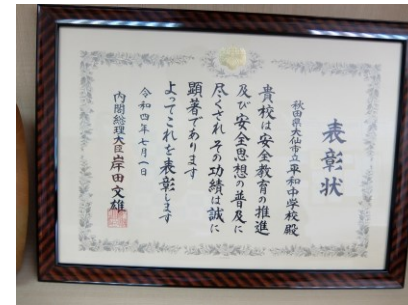 表彰状
秋田県大仙市立平和中学校殿
貴校は安全教育の推進
及び安全思想の普及に
尽くされその功績は誠に
顕著であります
よってこれを表彰します
令和四年七月一日
内閣総理大臣岸田文雄